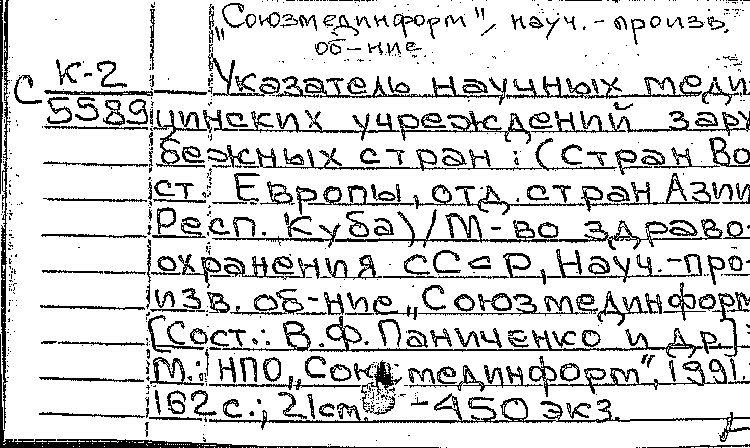 „Союзмединформ", науч.-произв.
об-ние
С К-2
5589
Указатель научных меди-
цинских учреждений зару
бежных стран : (Стран Во
ст. Европы, отд. стран Азии
Респ. Куба) / М-во здраво-
охранения СССР, Науч.-про-
изв. об-ние „Союзмединформ
[Сост.: В.Ф. Паниченко и др.].
М.: НПО „Союзмединформ", 1991.
162 с.; 21 см. -450 экз.